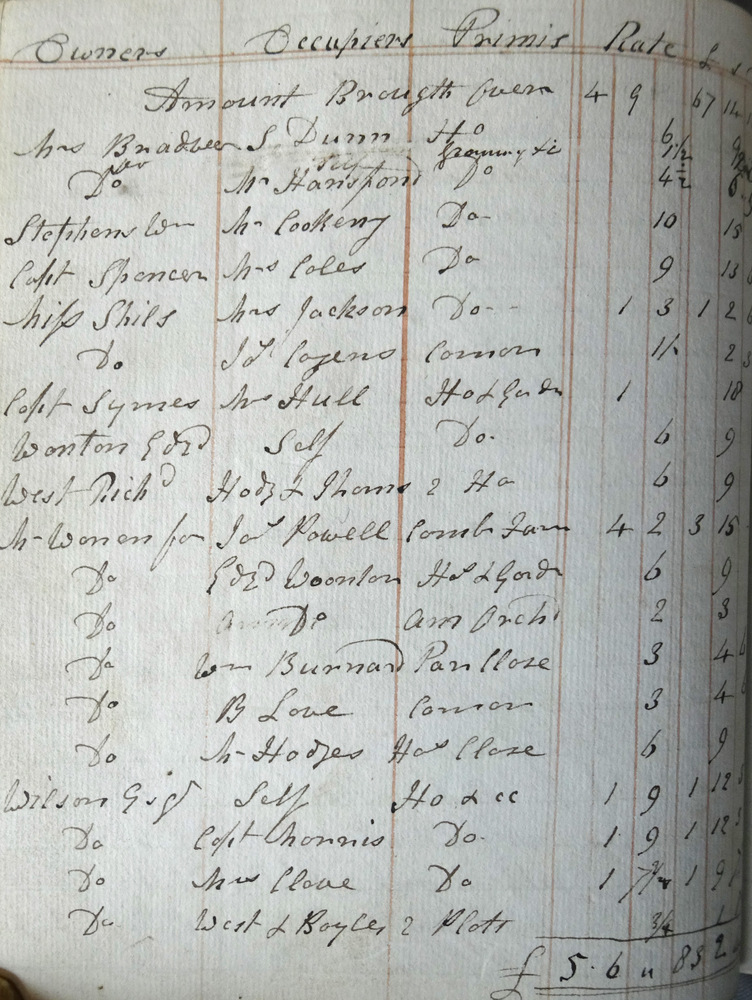 Owners Occupiers Primis Rate £ s
Amount Brough Over 4 9 67 14
Mrs Bradbeer S Dunn Ho 6
Do Mr Hansford Do 4 1/2 6
Stephens Wm Mr Cookeny Do 10 15
Capt Spencer Mrs Coles Do 9 13
Miss Shils Mrs Jackson Do 1 3 1 2
Do Jas Cozens Comon 1 1/2 2
Capt Symes Mrs Hull Ho & Gardn 1 18
Wonton Edwd Self Do 6 9
West Richd Hody & Thoms 2 Ho 6 9
Mr Wonen for Jas Powell Comb Farm 4 2 3 15
Do Edwd Woonton Hos & Gardn 6 9
Do Do am Orchd 2 3
Do Wm Burnard Pan Close 3 4
Do B Love Comon 3 4
Do Mr Hodges Hos Close 6 9
Wilson Esqr Self Ho & cc 1 9 1 12
Do Capt Thornis Do 1 9 1 12
Do Mrs Clove Do 1 1 9
Do West & Bayles 2 Plots 3/4 1
£ 5 6 " 83 2